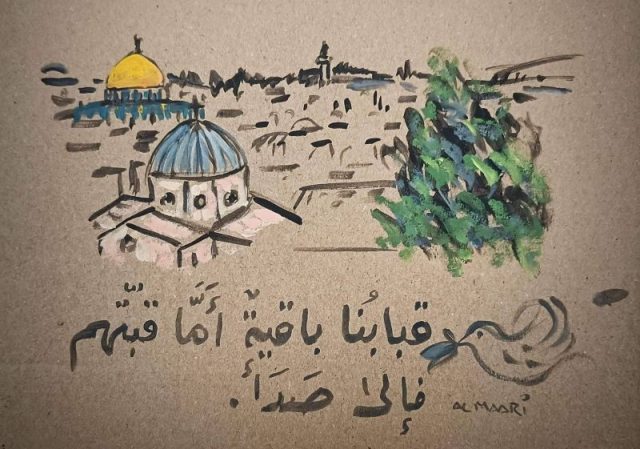 قبابُنا باقيةٌ أَمَّا قبّتهم
فإلىٰ صَدَأ.
ALMAARI